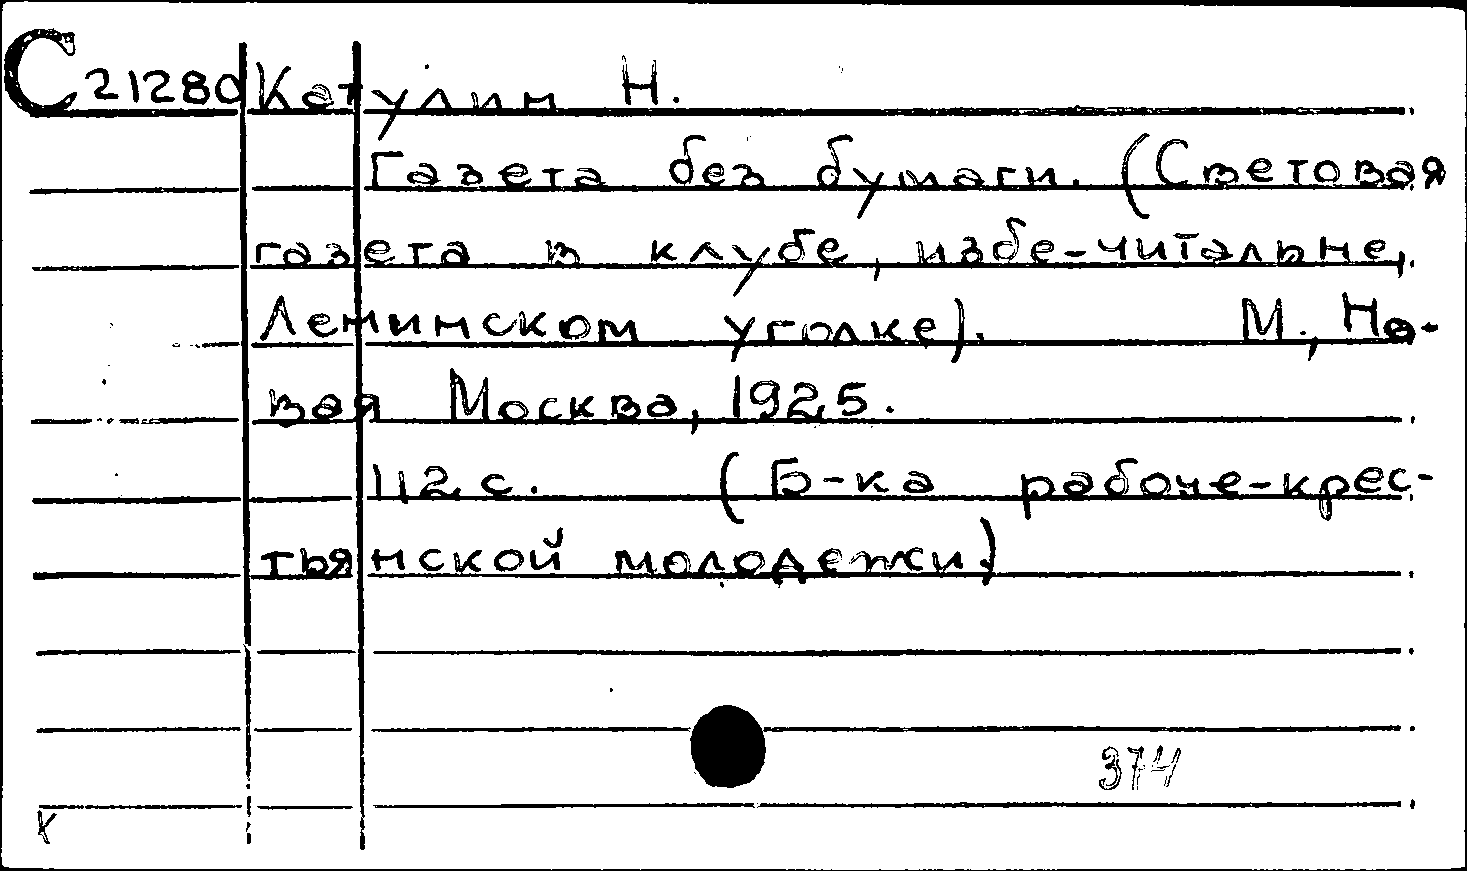 С 21280 Катулин Н.
Газета без бумаги. (Световая
газета в клубе, избе-читальне,
Ленинском уголке). М., Но-
вая Москва, 1925.
112 с. (Б-ка рабоче-крес-
тьянской молодежи)
374
К